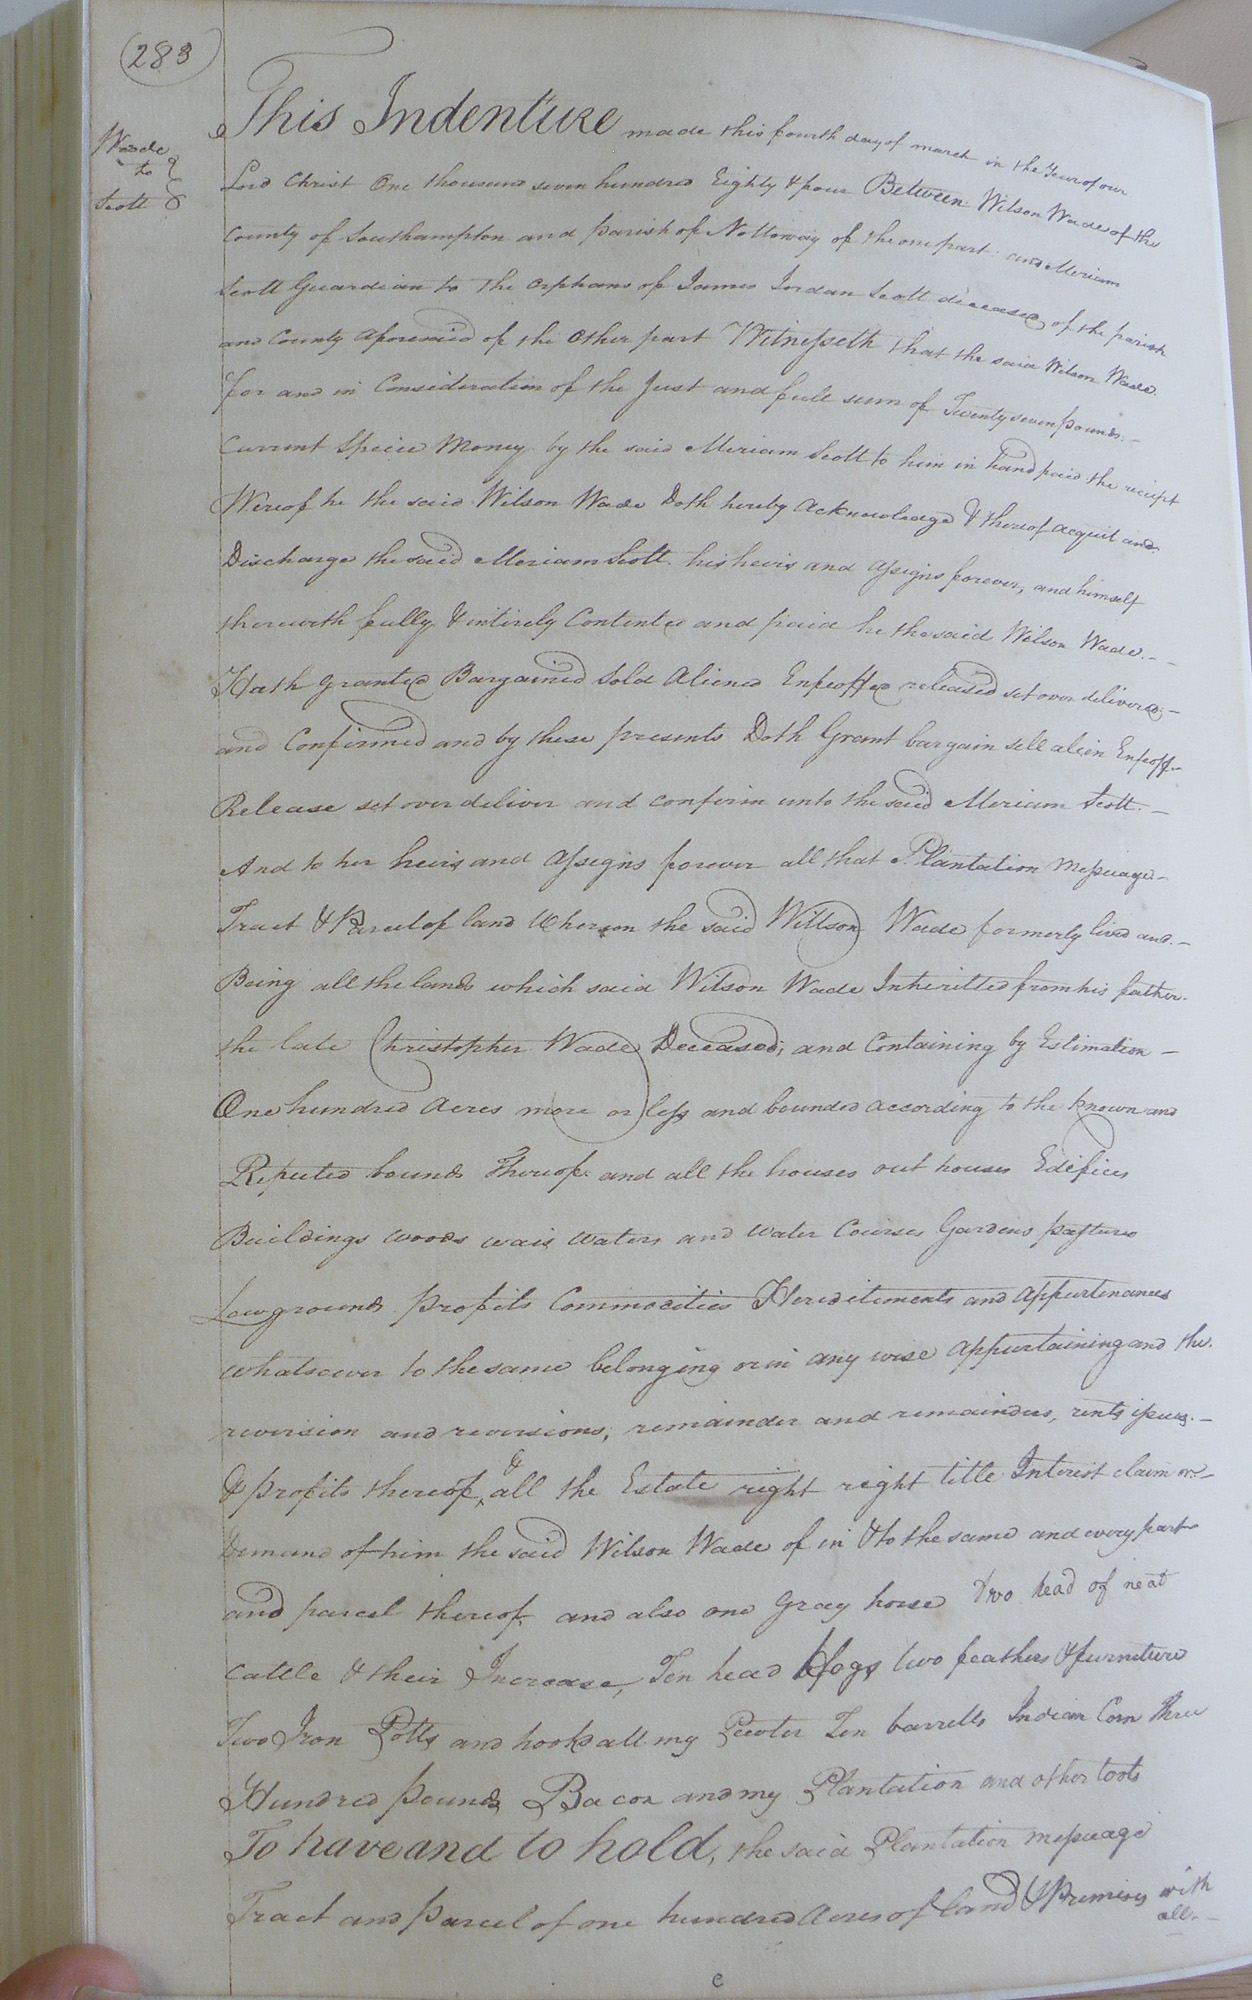 283
Wade
to
Scott
This Indenture made this fourth day of march in the Year of our
Lord Christ One thousand seven hundred Eighty & four Between Wilson Wade of the
County of Southampton and parish of Nottoway of the one part and Meriam
Scott Guardian to the orphans of James Jordan Scott deceased of the parish
and County aforesaid of the Other part Witnesseth that the said Wilson Wade
for and in Consideration of the Just and full sum of Twenty seven pounds
Current Specie Money by the said Meriam Scott to him in hand paid the reciept
Wereof he the said Wilson Wade Doth hereby Acknowledge & thereof acquit and
Discharge the said Meriam Scott his heirs and assigns forever, and himself
therewith fully & intirely Contented and paid he the said Wilson Wade
Hath Granted Bargained Sold Aliened Enfeoffed released set over delivered
and Confirmed and by these presents Doth Grant bargain sell alien Enfeoff
Release set over deliver and confirm unto the said Meriam Scott
And to her heirs and assigns forever all that Plantation Messuage
Tract & Parcel of land Whereon the said Willson Wade formerly lived and
Being all the lands which said Wilson Wade Inheritted from his father
the late Christopher Wade Deceased; and Containing by Estimation
One hundred Acres more or less and bounded according to the known and
Reputed bounds Thereof and all the houses out houses Edifices
Buildings woods wais waters and water Courses Gardens pastures
Lowgrounds profits Commodities Hereditements and appurtenances
whatsoever to the same belonging or in any wise appurtaining and the
reversion and reversions, remainder and remainders, rents issues
& profits thereof, & all the Estate right right title Interist claim or
Demand of him the said Wilson Wade of in & to the same and every part
and parcel thereof, and also one Gray horse two head of neat
Cattle & their Increase, Ten head Hogs two feathers & furniture
Two Iron Potts and hooks all my Pewter Ten barrells Indian Corn Three
Hundred pounds Bacon and my Plantation and other tools
To have and to hold, the said Plantation messuage
Tract and Parcel of one hundred Acres of land & Premises with
all
c